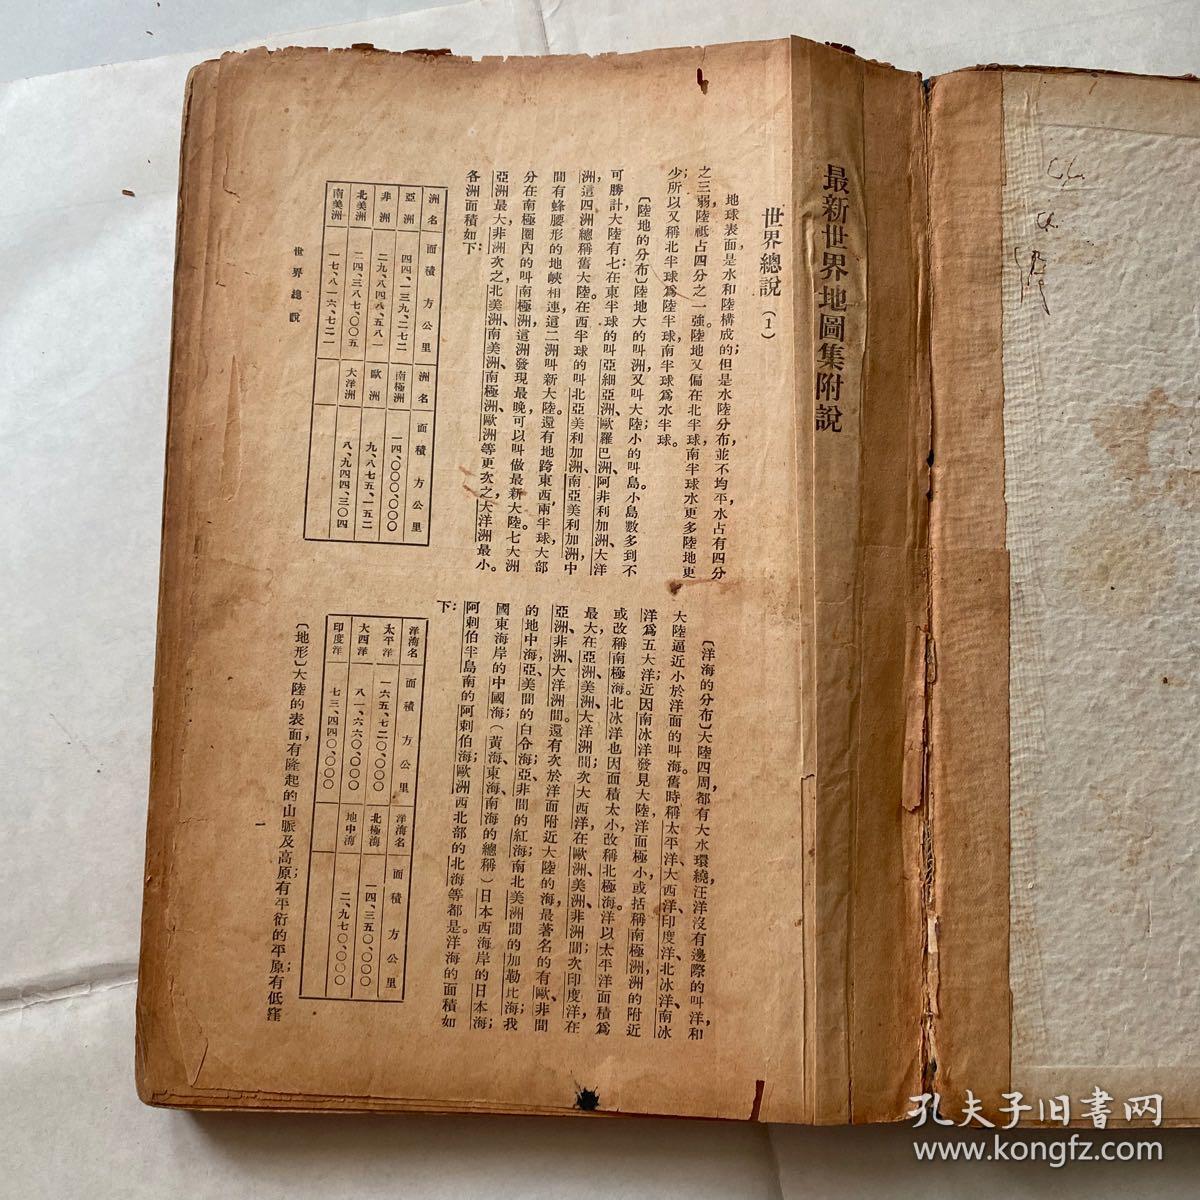 最新世界地圖集附說
世界總說（1）
地球表面是水和陸構成的；但是水陸分布，並不均平，水占有四分
之三弱，陸祇占四分之一強。陸地又偏在北半球，南半球水更多，陸地更
少；所以又稱北半球爲陸半球，南半球爲水半球。
〔陸地的分布〕陸地大的叫洲，又叫大陸；小的叫島。小島數多到不
可勝計，大陸有七：在東半球的叫亞細亞洲、歐羅巴洲、阿非利加洲、大洋
洲，這四洲總稱舊大陸。在西半球的叫北亞美利加洲、南亞美利加洲，中
間有蜂腰形的地峽相連，這二洲叫新大陸。還有地跨東西兩半球，大部
分在南極圈內的叫南極洲，這洲發現最晚，可以叫做最新大陸。七大洲
亞洲最大，非洲次之，北美洲、南美洲、南極洲、歐洲等更次之，大洋洲最小。
各洲面積如下：
洲名 面積方公里 洲名 面積方公里
亞洲 四四、一三九、二七二 南極洲 一四、〇〇〇、〇〇〇
非洲 二九、八四八、五八一 歐洲 九、八七五、一五二
北美洲 二四、三八七、〇〇五 大洋洲 八、九四四、三〇四
南美洲 一七、八一六、七二二
世界總說
〔洋海的分布〕大陸四周，都有大水環繞，汪洋沒有邊際的叫洋，和
大陸逼近，小於洋面的叫海。舊時稱太平洋、大西洋、印度洋、北冰洋、南冰
洋爲五大洋；近因南冰洋發見大陸，洋面極小，或括稱南極洲，洲的附近
或改稱南極海。北冰洋也因面積太小，改稱北極海。洋以太平洋面積爲
最大，在亞洲、美洲、大洋洲間；次大西洋，在歐洲、美洲、非洲間；次印度洋，在
亞洲、非洲、大洋洲間。還有次於洋面附近大陸的海，最著名的有歐、非間
的地中海，亞、美間的白令海；亞、非間的紅海；南北美洲間的加勒比海；我
國東海岸的中國海；（黃海、東海、南海的總稱）日本西海岸的日本海；
阿剌伯半島南的阿剌伯海；歐洲西北部的北海等都是。洋海的面積如
下：
洋海名 面積方公里 洋海名 面積方公里
太平洋 一六五、七二〇、〇〇〇 北極海 一四、三五〇、〇〇〇
大西洋 八一、六六〇、〇〇〇 地中海 二、九七〇、〇〇〇
印度洋 七三、四四〇、〇〇〇
〔地形〕大陸的表面，有隆起的山脈及高原；有平衍的平原；有低窪
一
孔夫子旧书网
www.kongfz.com